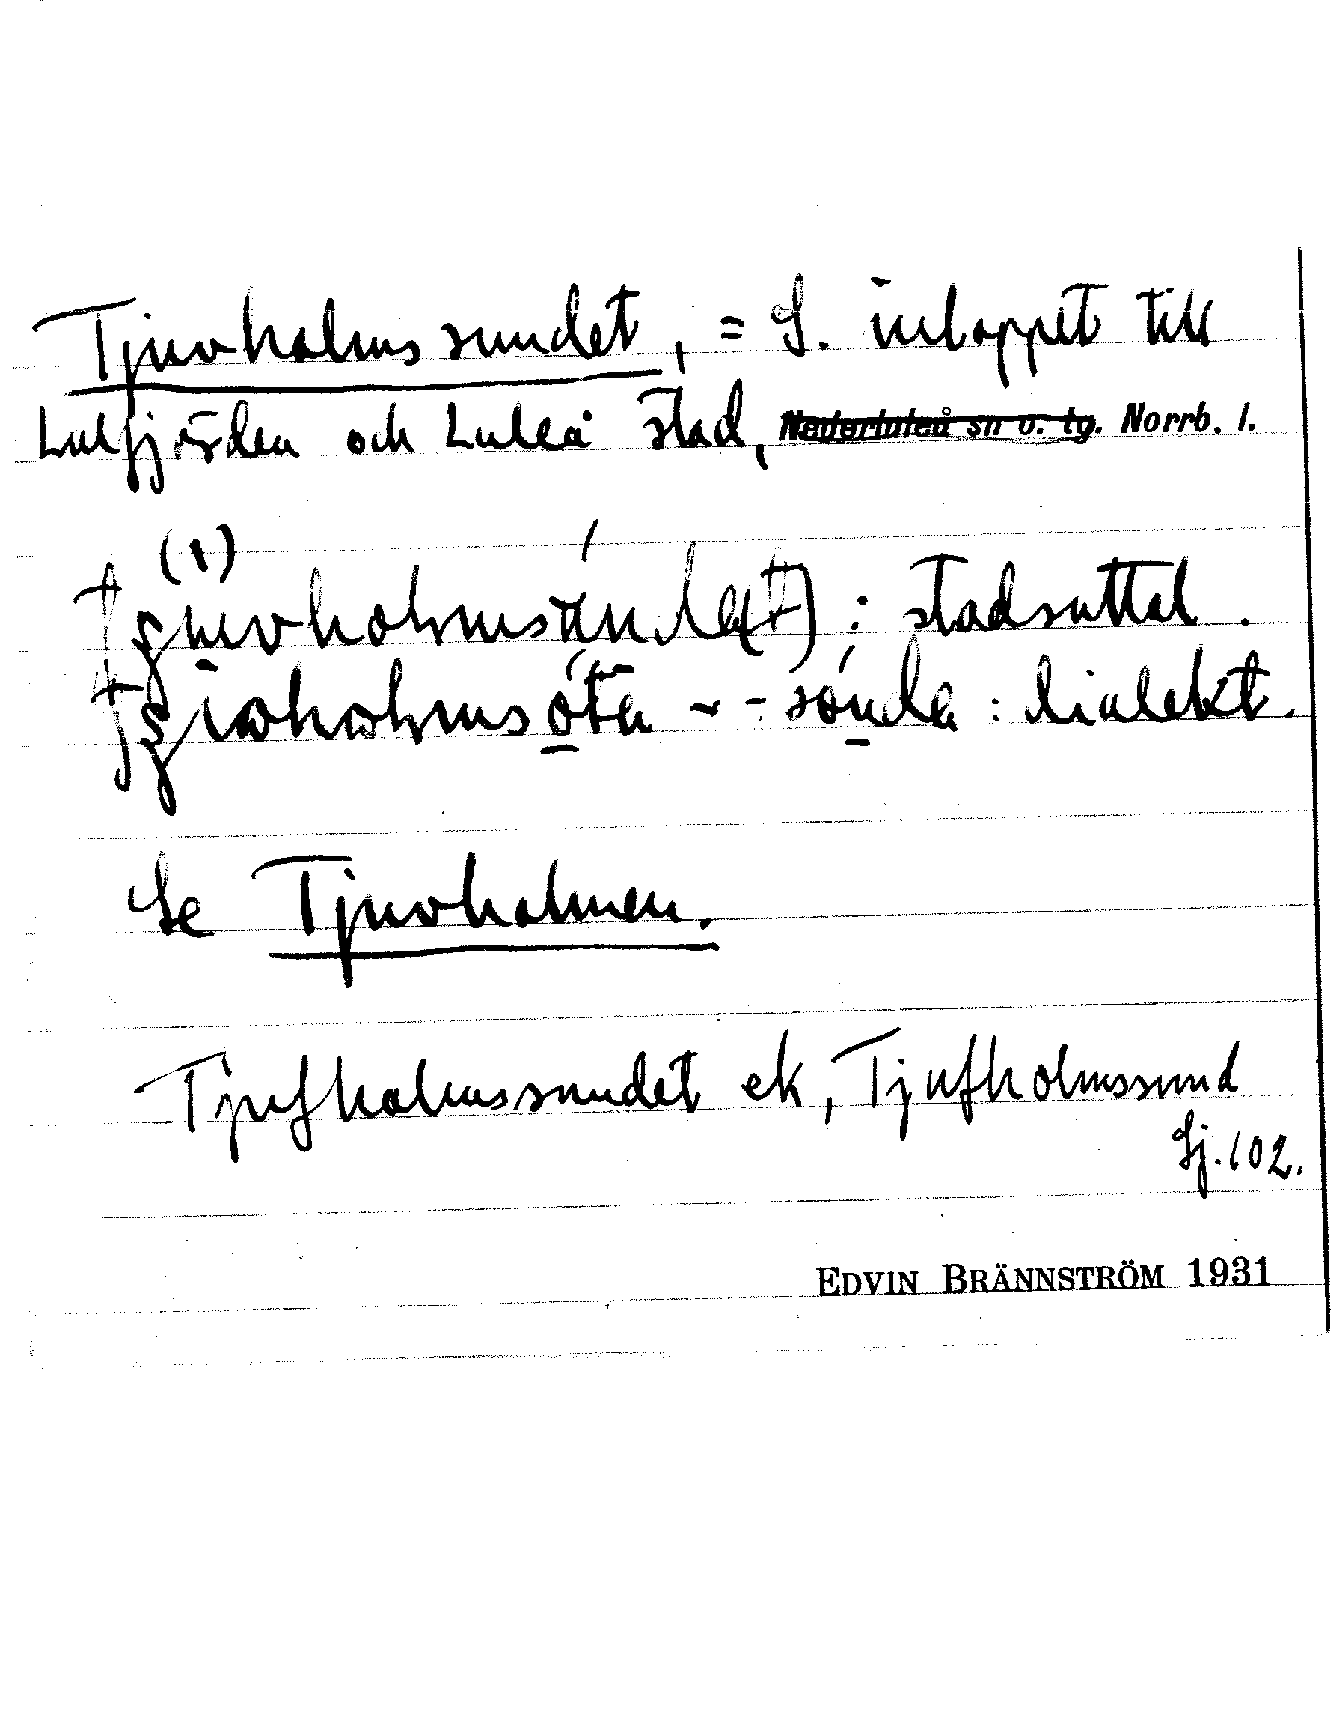 Tjuvholmssundet, = S. inloppet till
Lulfjärden och Luleå stad, Nederluleå sn o. tg. Norrb. l.
(1)
: stadsuttal.
: dialekt.
Se Tjuvholmen.
Tjufholmssundet ek, Tjufholmssund
Sj. 102.
EDVIN BRÄNNSTRÖM 1931